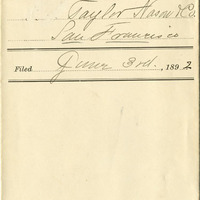 Taylor Nason & Co.
San Francisco
Filed June 3rd. , 1892